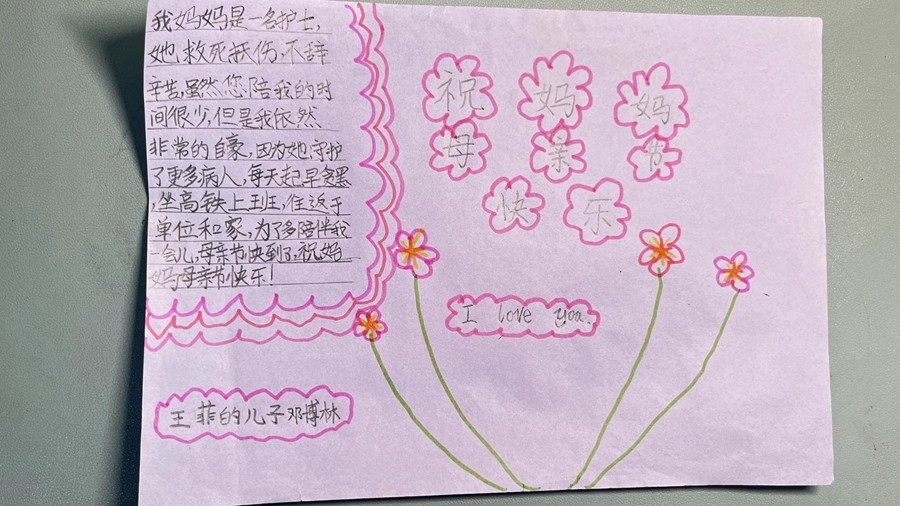 我妈妈是一名护士,
她救死扶伤,不辞
辛苦,虽然您陪我的时
间很少,但是我依然
非常的自豪,因为她守护
了更多病人,每天起早贪黑
,坐高铁上班,往返于
单位和家,为了多陪伴我
一会儿,母亲节快到了,祝妈
妈母亲节快乐!
祝妈妈
母亲节
快乐
I love you.
王菲的儿子邓博林